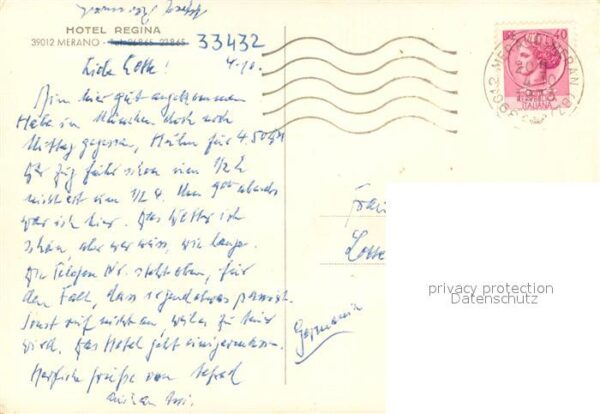 HOTEL REGINA
39012 MERANO - Tel. 26865-23865 33432
4.10.
Liebe Lotte!
Bin hier gut angekommen
Habe in München noch
Mittag gegessen, Huhn für 4.50 DM
Der Zug fuhr schon um 1/2 2
nicht erst um 1/2 4. Um 9 abends
war ich hier. Das Wetter ist
schön aber wer weiss, wie lange.
Die Telefon Nr. steht oben, für
den Fall, dass irgendetwas passiert.
Sonst ruf nicht an, weil es zu teuer
wird. Das Hotel geht einigermassen.
Herzliche Grüße von
40
ITALIANA
39012
Lotte
Germania
privacy protection
Datenschutz